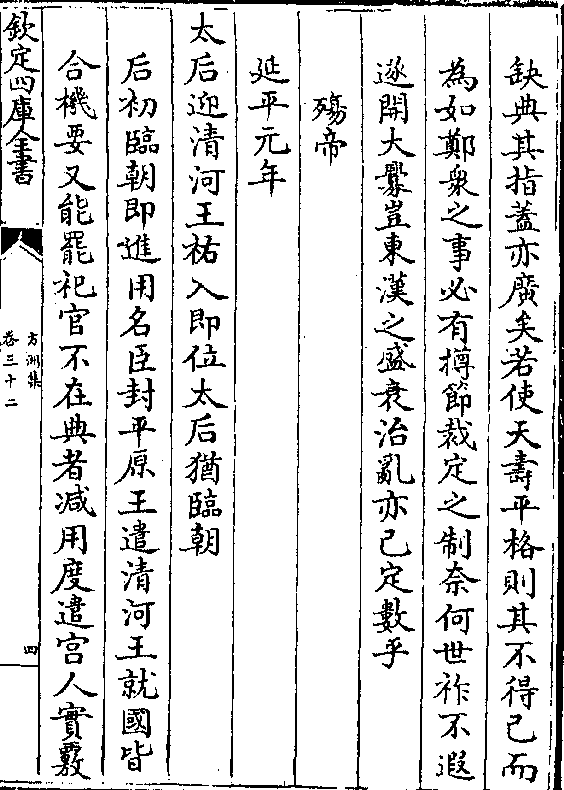 缺典其指蓋亦廣矣若使天壽平格則其不得已而
為如鄭衆之事必有撙節裁定之制奈何世祚不遐
遂開大釁豈東漢之盛衰治亂亦已定數乎
殤帝
延平元年
太后迎清河王祐入即位太后猶臨朝
后初臨朝即進用名臣封平原王遣清河王就國皆
合機要又能罷祀官不在典者减用度遣宮人實覈
欽定四庫全書
方洲集
卷三十二
四